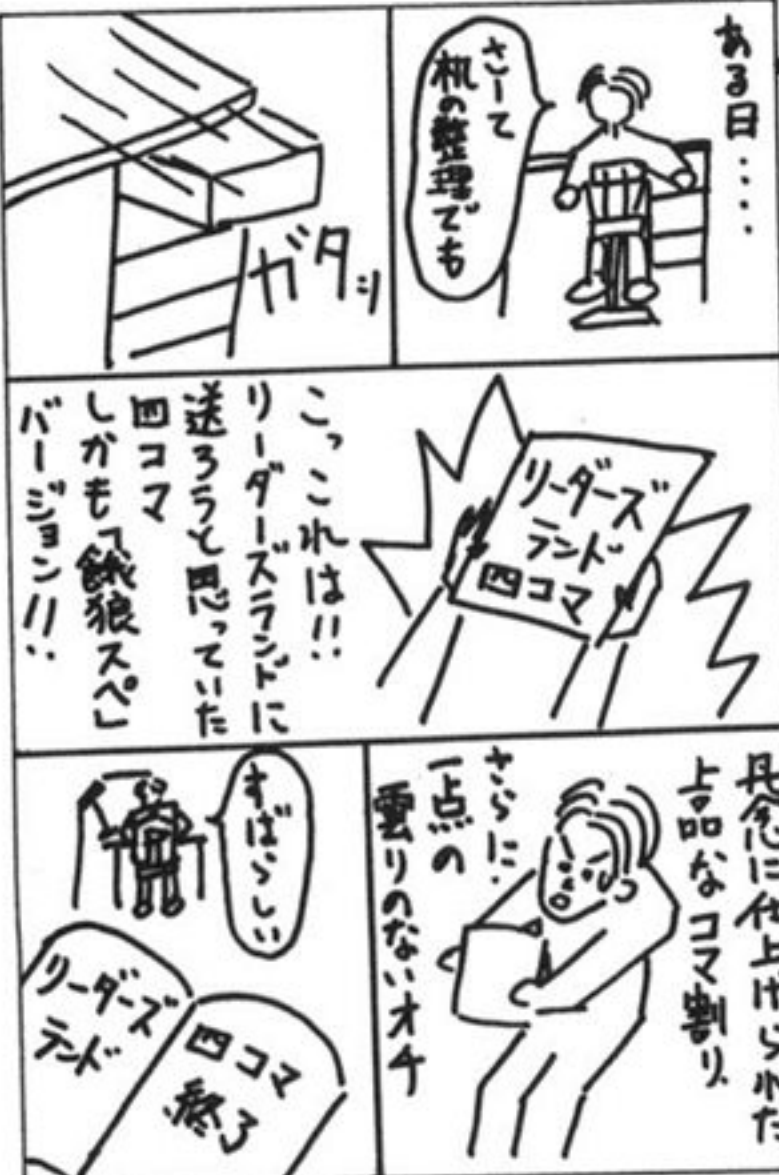 ある日‥‥
さーて
机の整理でも
ガタッ
リーダーズ
ランド
四コマ
こっこれは!!
リーダーズランドに
送ろうと思っていた
四コマ
しかも「餓狼スペ」
バージョン!!
丹念に仕上げられた
上品なコマ割り、
さらに、
一点の
雲りのないオチ
すばらしい
リーダーズ
ランド
四コマ
終了